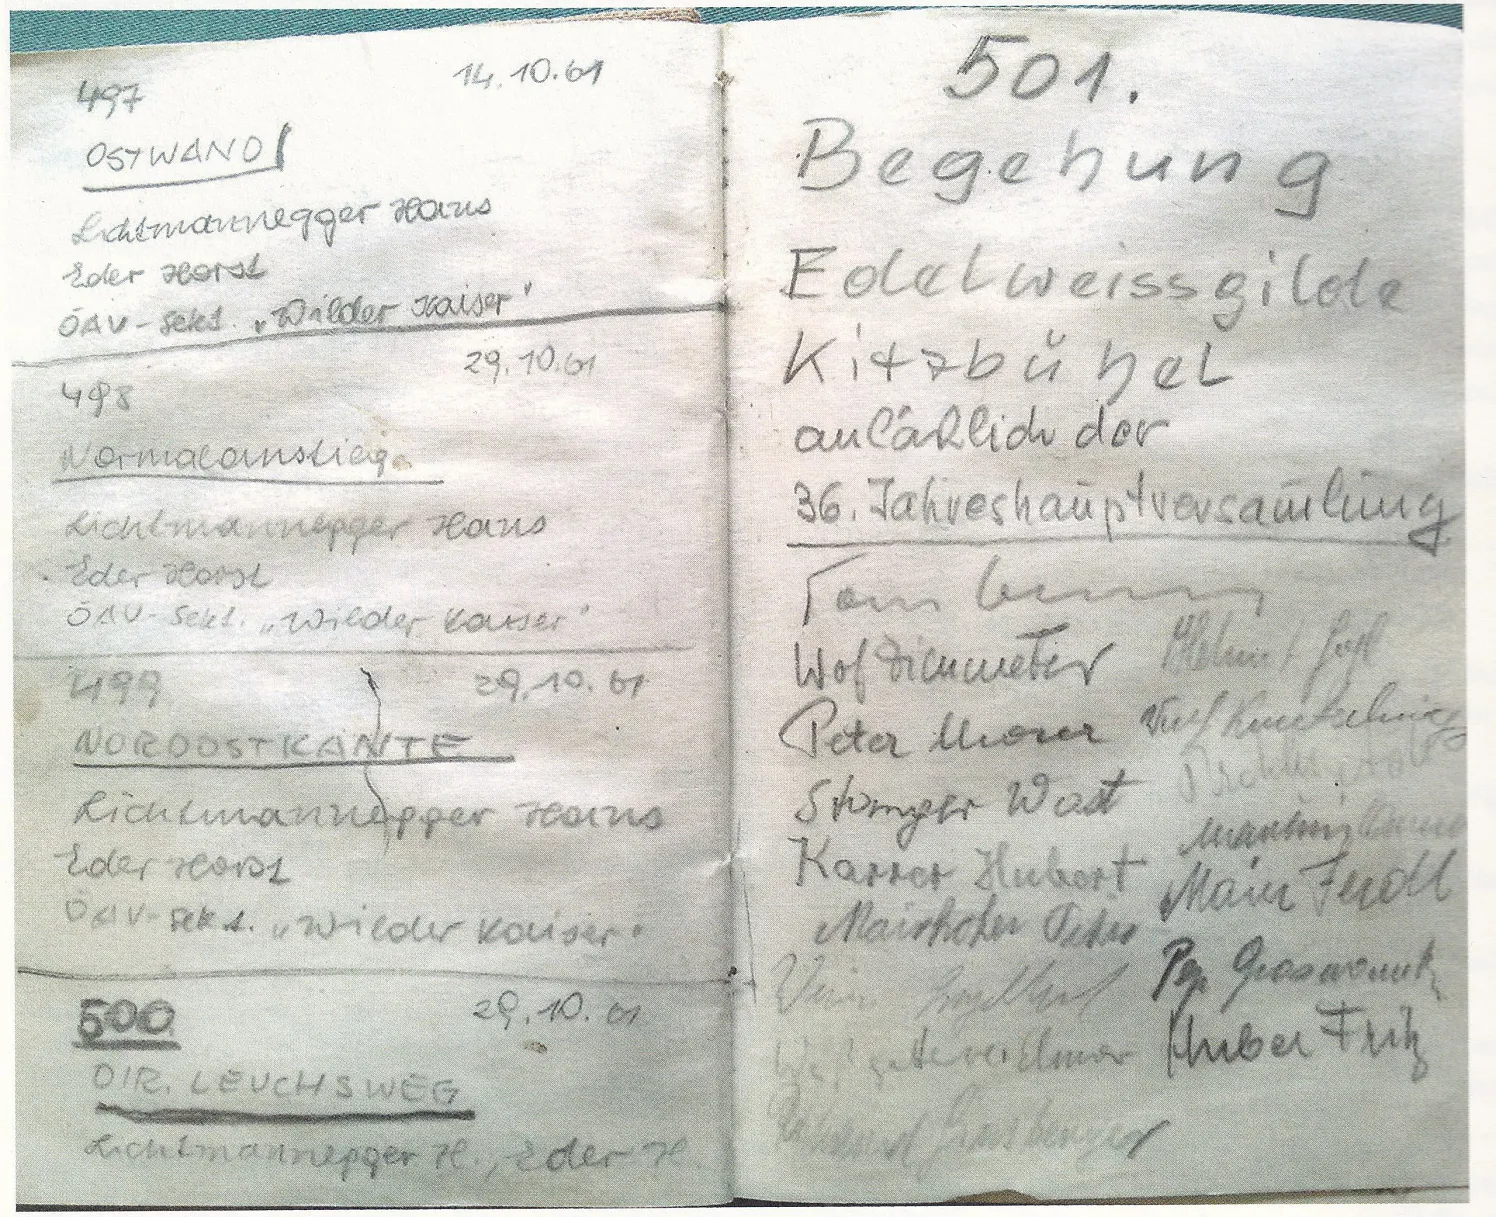 497 14.10.61
OSTWAND
Lichtmannegger Hans
Eder Horst
ÖAV-Sekt. „Wilder Kaiser"
498 29.10.61
Normalanstieg
Lichtmannegger Hans
Eder Horst
ÖAV-Sekt. „Wilder Kaiser"
499 29.10.61
NORDOSTKANTE
Lichtmannegger Hans
Eder Horst
ÖAV-Sekt. „Wilder Kaiser"
500 29.10.61
DIR. LEUCHSWEG
Lichtmannegger H., Eder H.
501.
Begehung
Edelweissgilde
Kitzbühel
anläßlich der
36. Jahreshauptversam̄lung
Peter
Stanger Wast
Karrer Hubert
Mairhofer Peter
Mair Ferdl
Huber Fritz